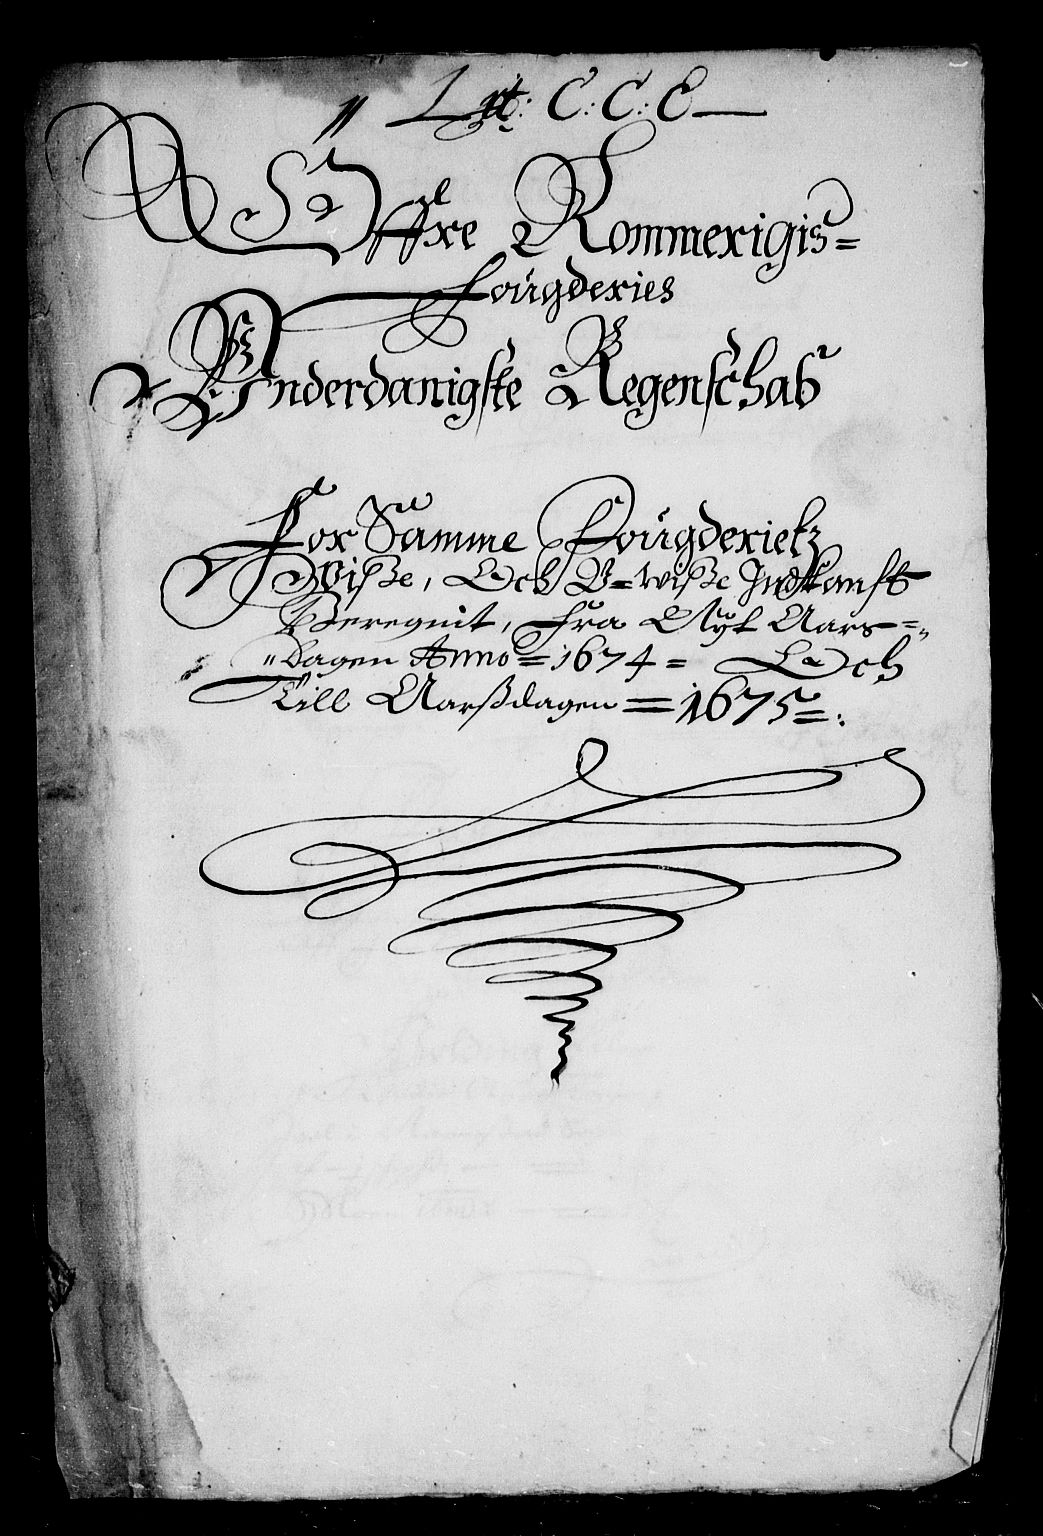 Lit: C: C: C
Øffre Rommerigis=
Fougderies
Underdanigste Regenschab
For Samme Fougderietz
Wisse, Och U=wisse Indkomst
Beregnit, Fra Nyt Aars=
"dagen Anno = 1674 = Och
Till Aarßdagen = 1675 =: